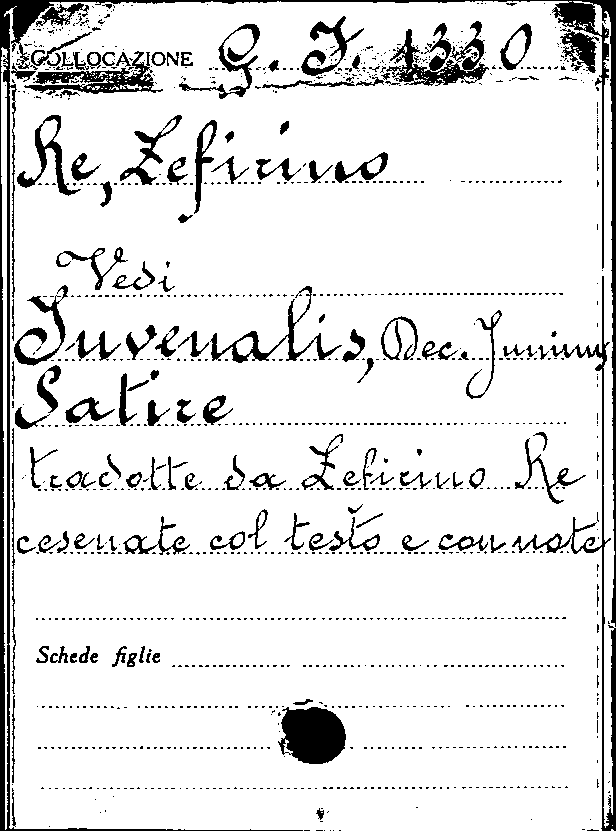 COLLOCAZIONE G. J. 1330
Re, Zefirino
Vedi
Juvenalis, Dec. Junius
Satire
tradotte da Zefirino Re
cesenate col testo e con note
Schede figlie